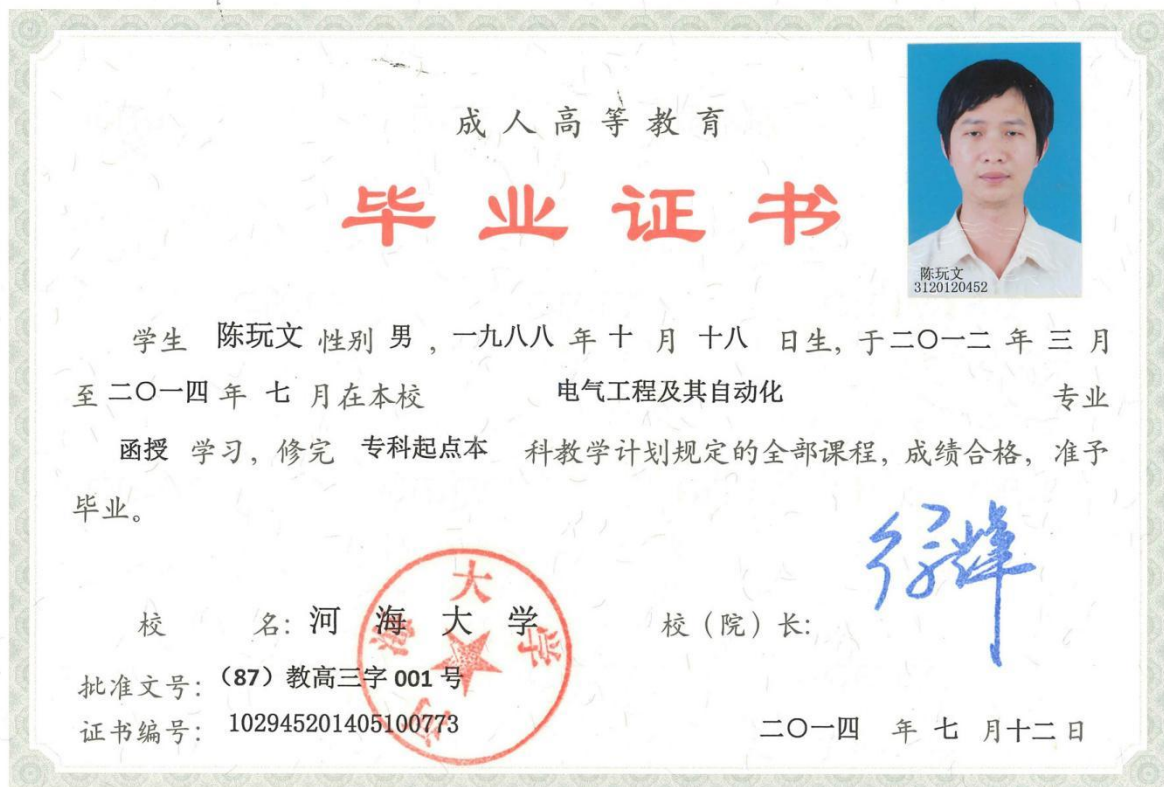 成人高等教育
毕业证书
陈玩文
3120120452
学生 陈玩文 性别 男 ，一九八八 年 十 月 十八 日生，于二〇一二 年 三 月
至 二〇一四 年 七 月在本校 电气工程及其自动化 专业
函授 学习，修完 专科起点本 科教学计划规定的全部课程，成绩合格，准予
毕业。
校 名：河 海 大 学 校（院）长：
河海大学
批准文号：（87）教高三字 001 号
证书编号：102945201405100773
二〇一四 年 七 月十二日